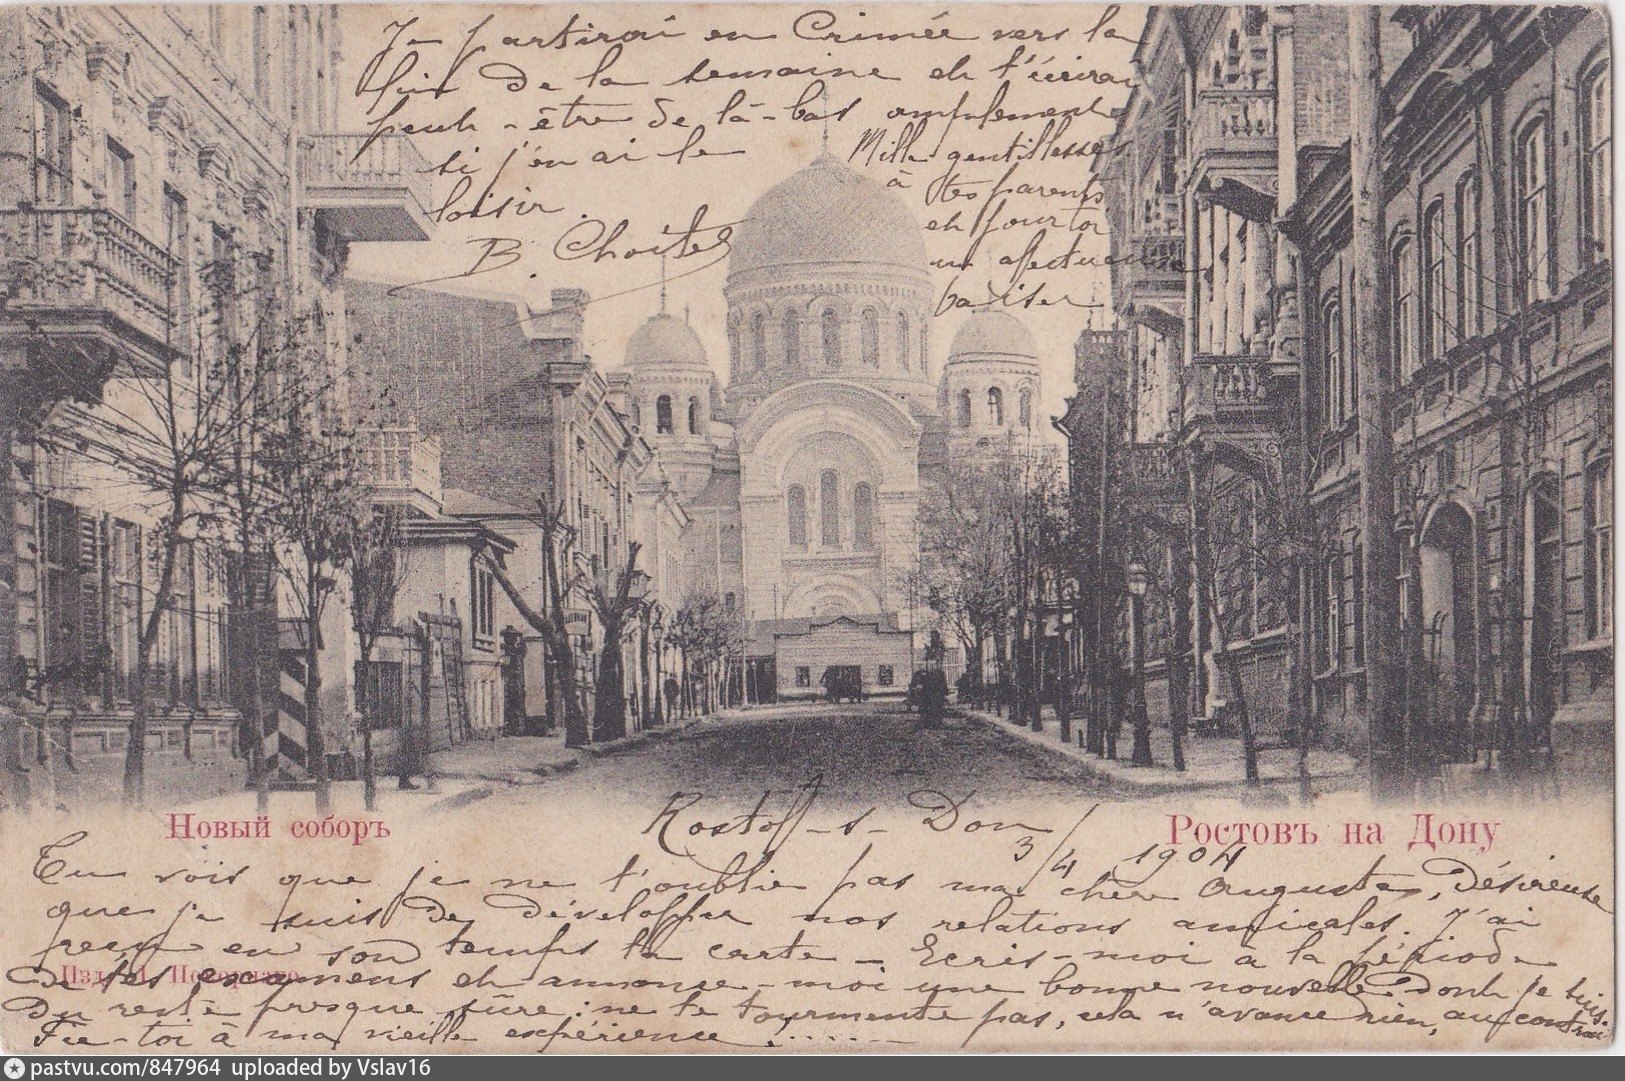 Je partirai en Crimée vers la
fin de la semaine et t'écrirai
peut-être de là-bas amplement
si j'en ai le
loisir.
B.
Mille gentillesses
à tes parents
et pour toi
un afectueuse
baiser
Новый соборъ
Rostoff-s-Don
3/4 1904
Ростовъ на Дону
Tu vois que je ne t'oublie pas ma chère Auguste, Désireuse
que je suis de développer nos relations amicales. J'ai
reçu en son temps ta carte - Ecris-moi à la période
Изд.
de tes examens et annonce-moi une bonne nouvelle dont je suis
du reste presque sûre: ne te tourmente pas, cela n'avance rien, au contraire
Fie-toi à ma vieille expérience!......
pastvu.com/847964 uploaded by Vslav16